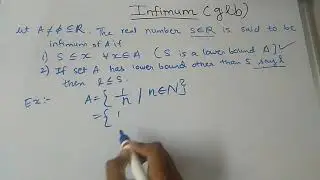 Infimum (glb)
Let A ≠ ϕ ⊆ R. The real number S∈R is said to be
infimum of A if
1) S ≤ x ∀ x∈A (S is a lower bound A) ✓
2) If set A has lower bound other than S say l
then l ≤ S.
Ex:- A = { 1/n / n∈N }
= { 1